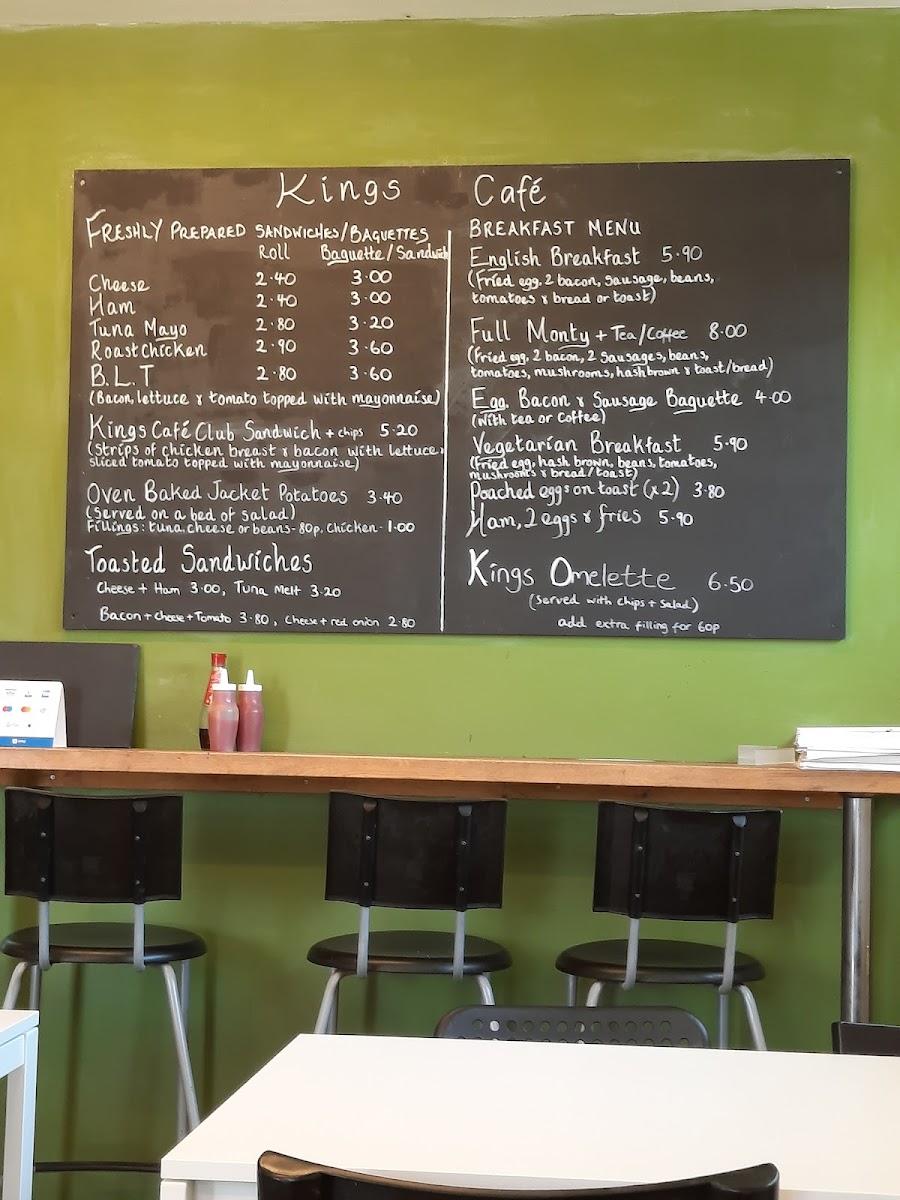 Kings Café
FRESHLY PREPARED SANDWICHES/BAGUETTES
Roll Baguette/Sandwich
Cheese 2.40 3.00
Ham 2.40 3.00
Tuna Mayo 2.80 3.20
Roast Chicken 2.90 3.60
B.L.T 2.80 3.60
(Bacon, lettuce & tomato topped with mayonnaise)
Kings Café Club Sandwich + chips 5.20
(Strips of chicken breast & bacon with lettuce,
sliced tomato topped with mayonnaise)
Oven Baked Jacket Potatoes 3.40
(Served on a bed of salad)
Fillings: tuna, cheese or beans - 80p, chicken - 1.00
Toasted Sandwiches
Cheese + Ham 3.00, Tuna Melt 3.20
Bacon + cheese + Tomato 3.80, Cheese + red onion 2.80
BREAKFAST MENU
English Breakfast 5.90
(Fried egg, 2 bacon, sausage, beans,
tomatoes & bread or toast)
Full Monty + Tea/Coffee 8.00
(Fried egg, 2 bacon, 2 sausages, beans,
tomatoes, mushrooms, hash brown & toast/bread)
Egg, Bacon & Sausage Baguette 4.00
(with tea or coffee)
Vegetarian Breakfast 5.90
(Fried egg, hash brown, beans, tomatoes,
mushrooms & bread/toast)
Poached eggs on toast (x2) 3.80
Ham, 2 eggs & fries 5.90
Kings Omelette 6.50
(Served with chips + salad)
add extra filling for 60p